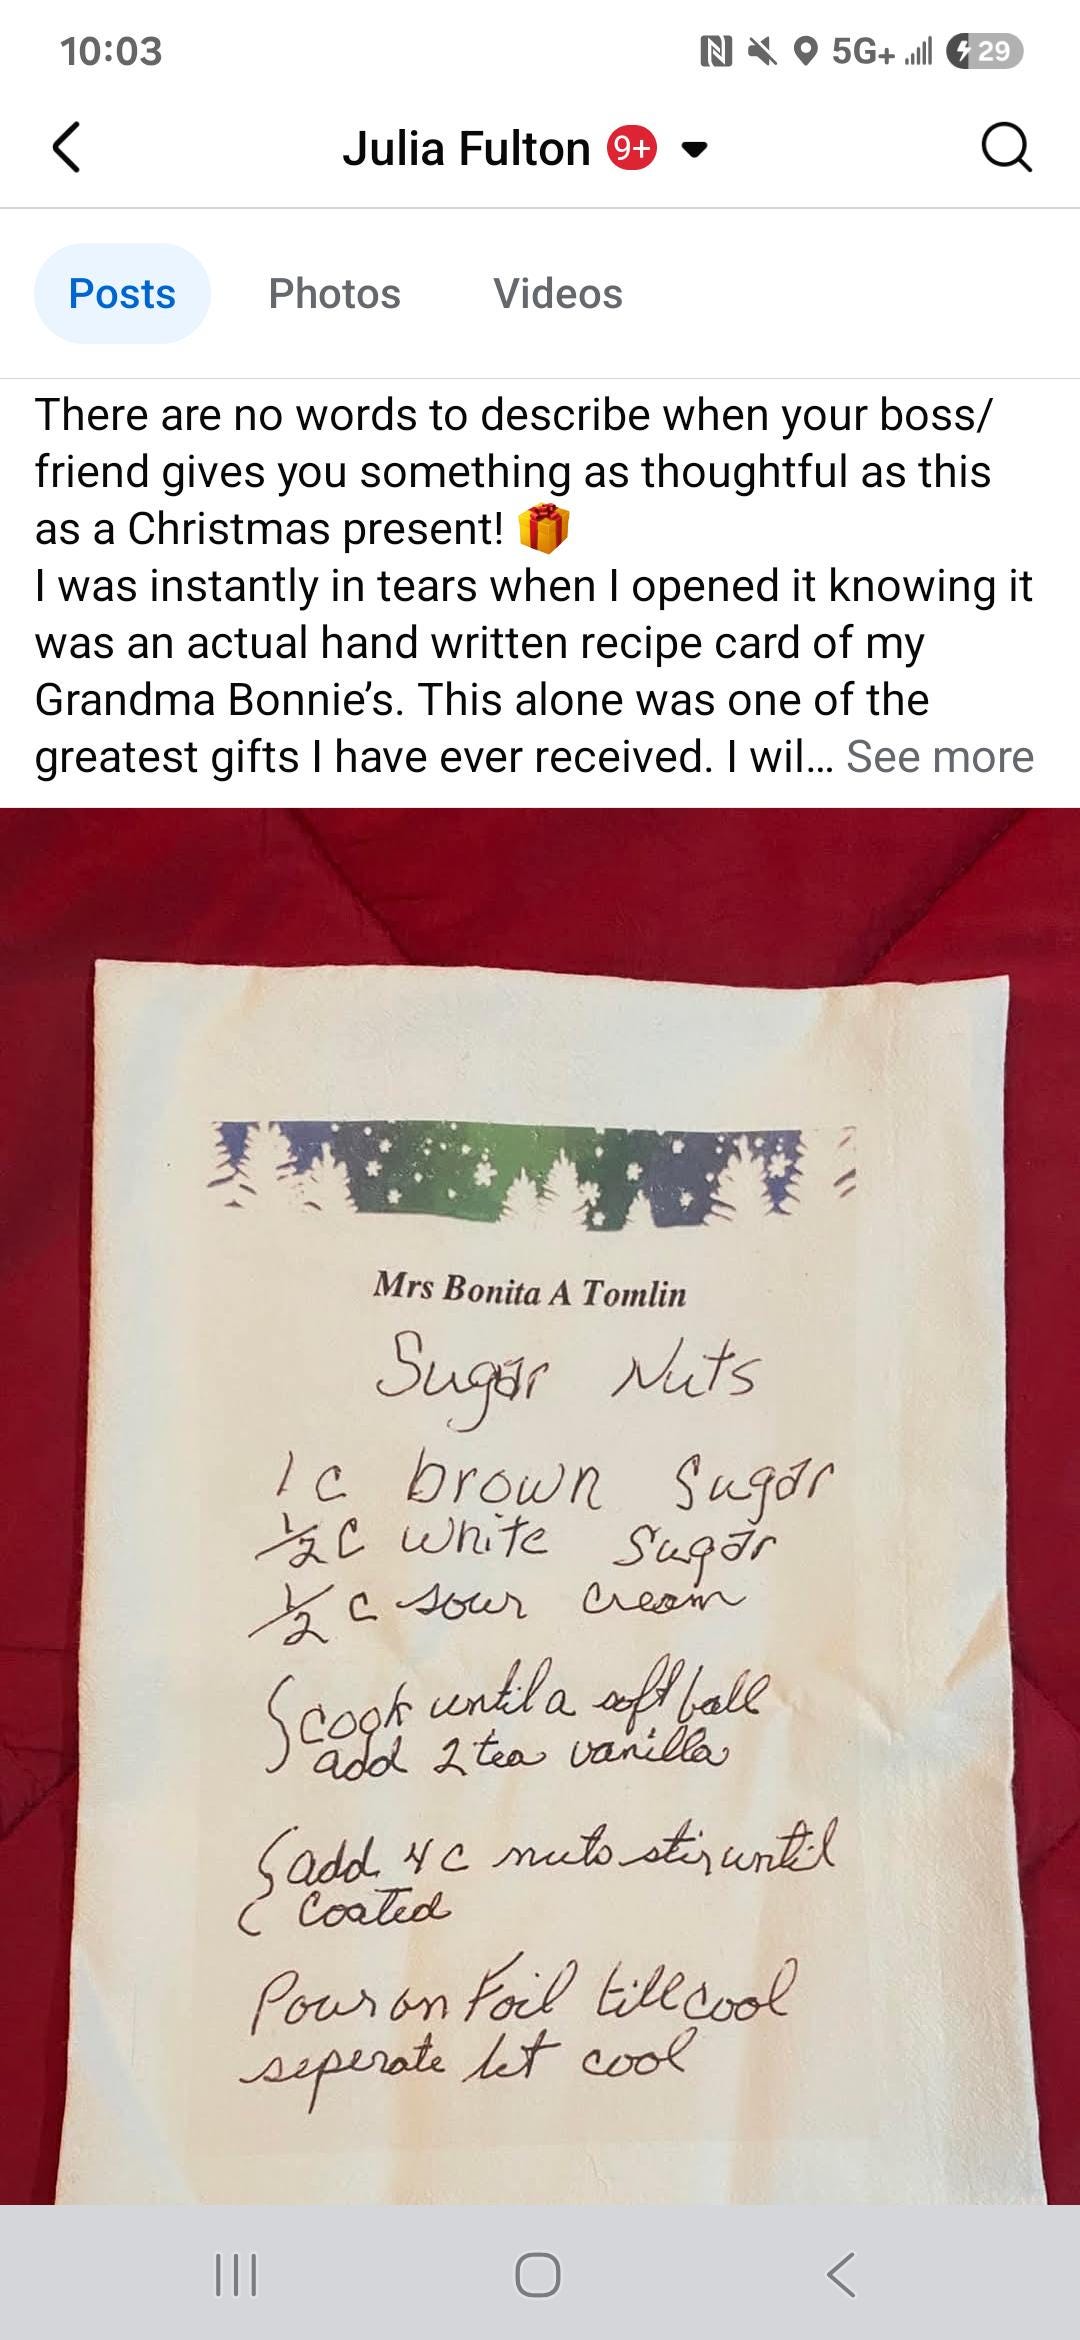 10:03
5G+ 29
Julia Fulton 9+
Posts Photos Videos
There are no words to describe when your boss/
friend gives you something as thoughtful as this
as a Christmas present! 🎁
I was instantly in tears when I opened it knowing it
was an actual hand written recipe card of my
Grandma Bonnie's. This alone was one of the
greatest gifts I have ever received. I wil... See more
Mrs Bonita A Tomlin
Sugar Nuts
1 c brown Sugar
1/2 C white Sugar
1/2 c sour cream
cook until a soft ball
add 2 tea vanilla
add 4 c nuts stir until
coated
Pour on Foil till cool
seperate let cool